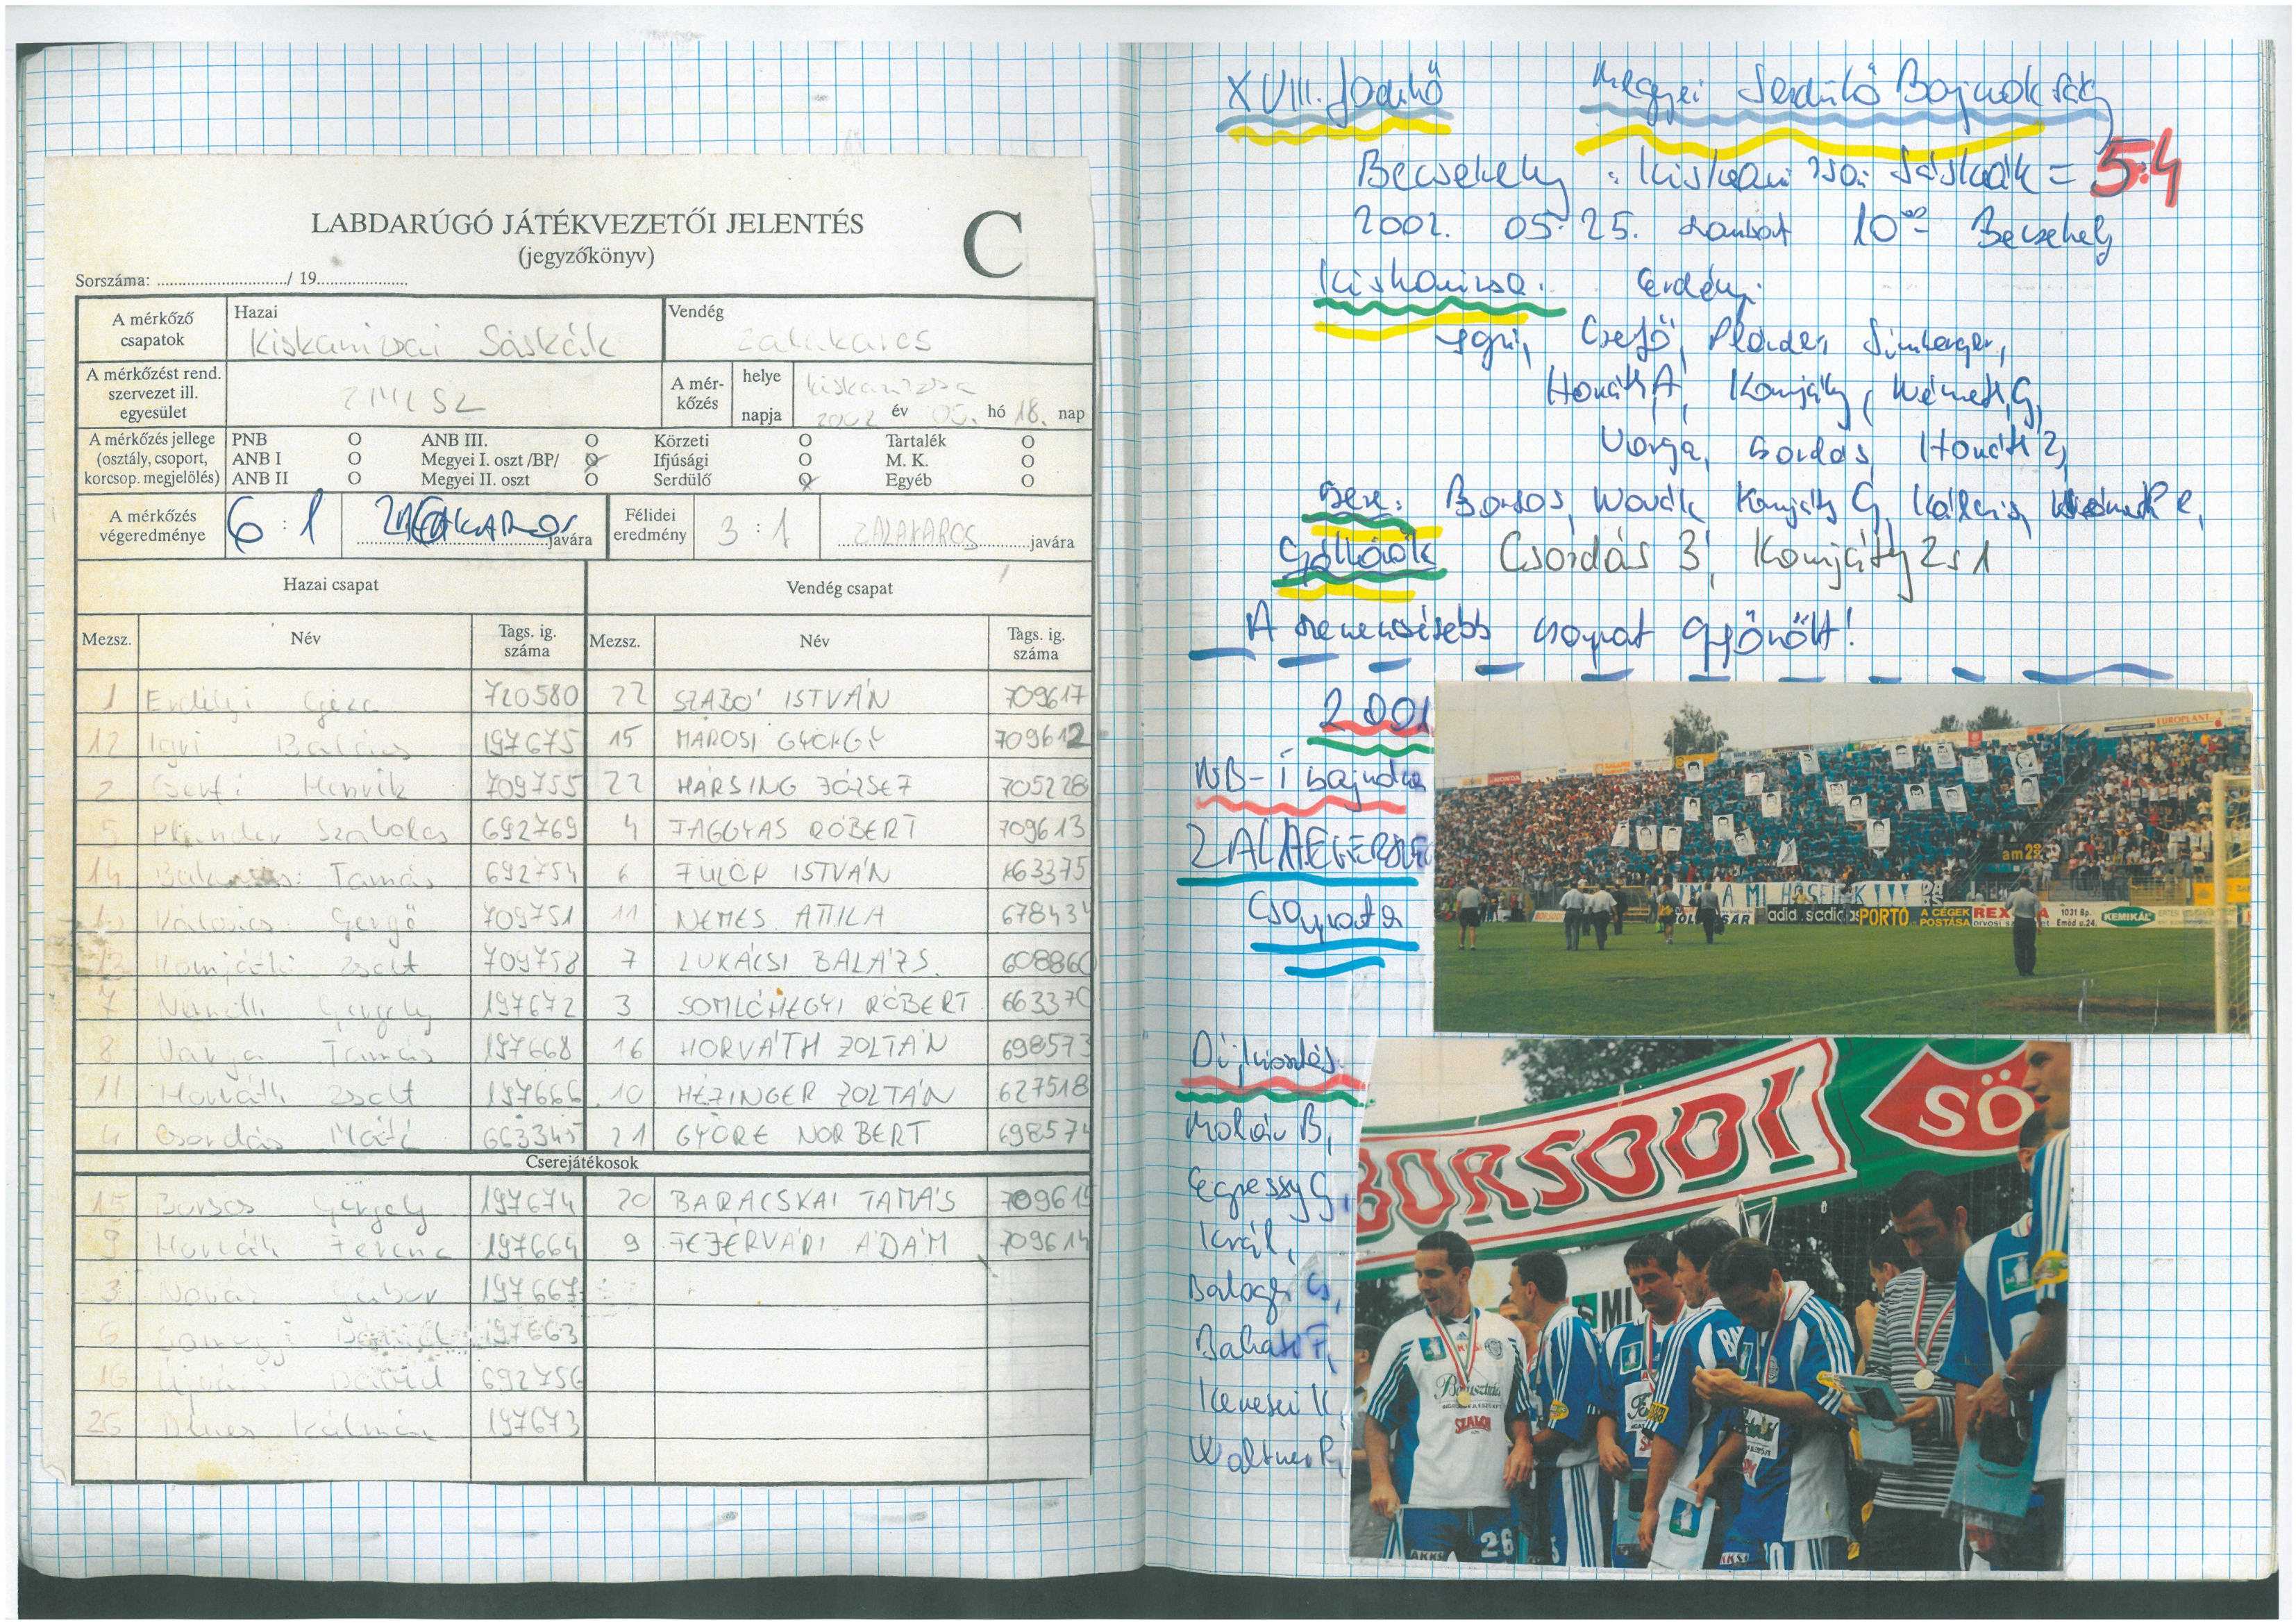 LABDARÚGÓ JÁTÉKVEZETŐI JELENTÉS
(jegyzőkönyv)
C
Sorszáma: ............................./ 19....................
A mérkőző csapatok
Hazai
Kiskanizsai Sáskák
Vendég
Zalakaros
A mérkőzést rend. szervezet ill. egyesület
ZMLSZ
A mér-kőzés
helye
Kiskanizsa
napja
2002 év 05. hó 18. nap
A mérkőzés jellege (osztály, csoport, korcsop. megjelölés)
PNB O ANB III. O Körzeti O Tartalék O
ANB I O Megyei I. oszt /BP/ O Ifjúsági O M. K. O
ANB II O Megyei II. oszt O Serdülő O Egyéb O
A mérkőzés végeredménye
6 : 1 ZALAKAROS javára
Félidei eredmény
3 : 1 ZALAKAROS javára
Hazai csapat
Vendég csapat
Mezsz. Név Tags. ig. száma Mezsz. Név Tags. ig. száma
1 Erdélyi Géza 720580 22 SZABÓ ISTVÁN 709617
12 Igri Balázs 197675 15 MAROSI GYÖRGY 709612
2 Cserfő Henrik 709755 22 MÁRSING JÓZSEF 705228
5 Plander Szabolcs 692769 4 FAGGYAS RÓBERT 709613
14 Tamás 692754 6 FÜLÖP ISTVÁN 663375
Gergő 709751 11 NEMES ATTILA 678434
13 Komjáti Zsolt 709758 7 LUKÁCSI BALÁZS 608860
7 Németh Gergely 197672 3 SOMLÓHEGYI RÓBERT 663370
8 Varga Tamás 197668 16 HORVÁTH ZOLTÁN 698573
11 Horváth Zsolt 197666 10 HÉZINGER ZOLTÁN 627518
4 Csordás Máté 663345 21 GYŐRE NORBERT 698574
Cserejátékosok
15 Borsos Gergely 197674 20 BARACSKAI TAMÁS 709615
9 Horváth Ferenc 197664 9 FEJÉRVÁRI ÁDÁM 709614
3 Novák Gábor 197667
6 197663
16 Dávid 692756
26 Kálmán 197673
XVIII. forduló Megyei Serdülő Bajnokság
Becsehely : Kiskanizsai Sáskák = 5:4
2002. 05. 25. szombat 10⁰⁰ Becsehely
Kiskanizsa: Erdélyi
Igri, Cserfő, Plander, Simberger,
Horváth A, Komjáty, Németh G,
Varga, Csordás, Horváth Z,
Csere: Borsos, Novák, Komjáty G, Kálovics,
Góllövők Csordás 3, Komjáty Zs 1
A szerencsésebb csapat győzött!
2001
NB-I bajnoka
ZALAEGERSZEG
Csapata
Díjkiosztás
Molnár B,
Egressy G,
Král,
Balogh G,
Babati F,
Kenesei K,
Waltner R,
EUROPLANT
HONDA
am23
adidas
PORTO
A CÉGEK POSTÁSA
1031 Bp.
Emőd u.24.
KEMIKÁL
BORSODI
SÖ
26